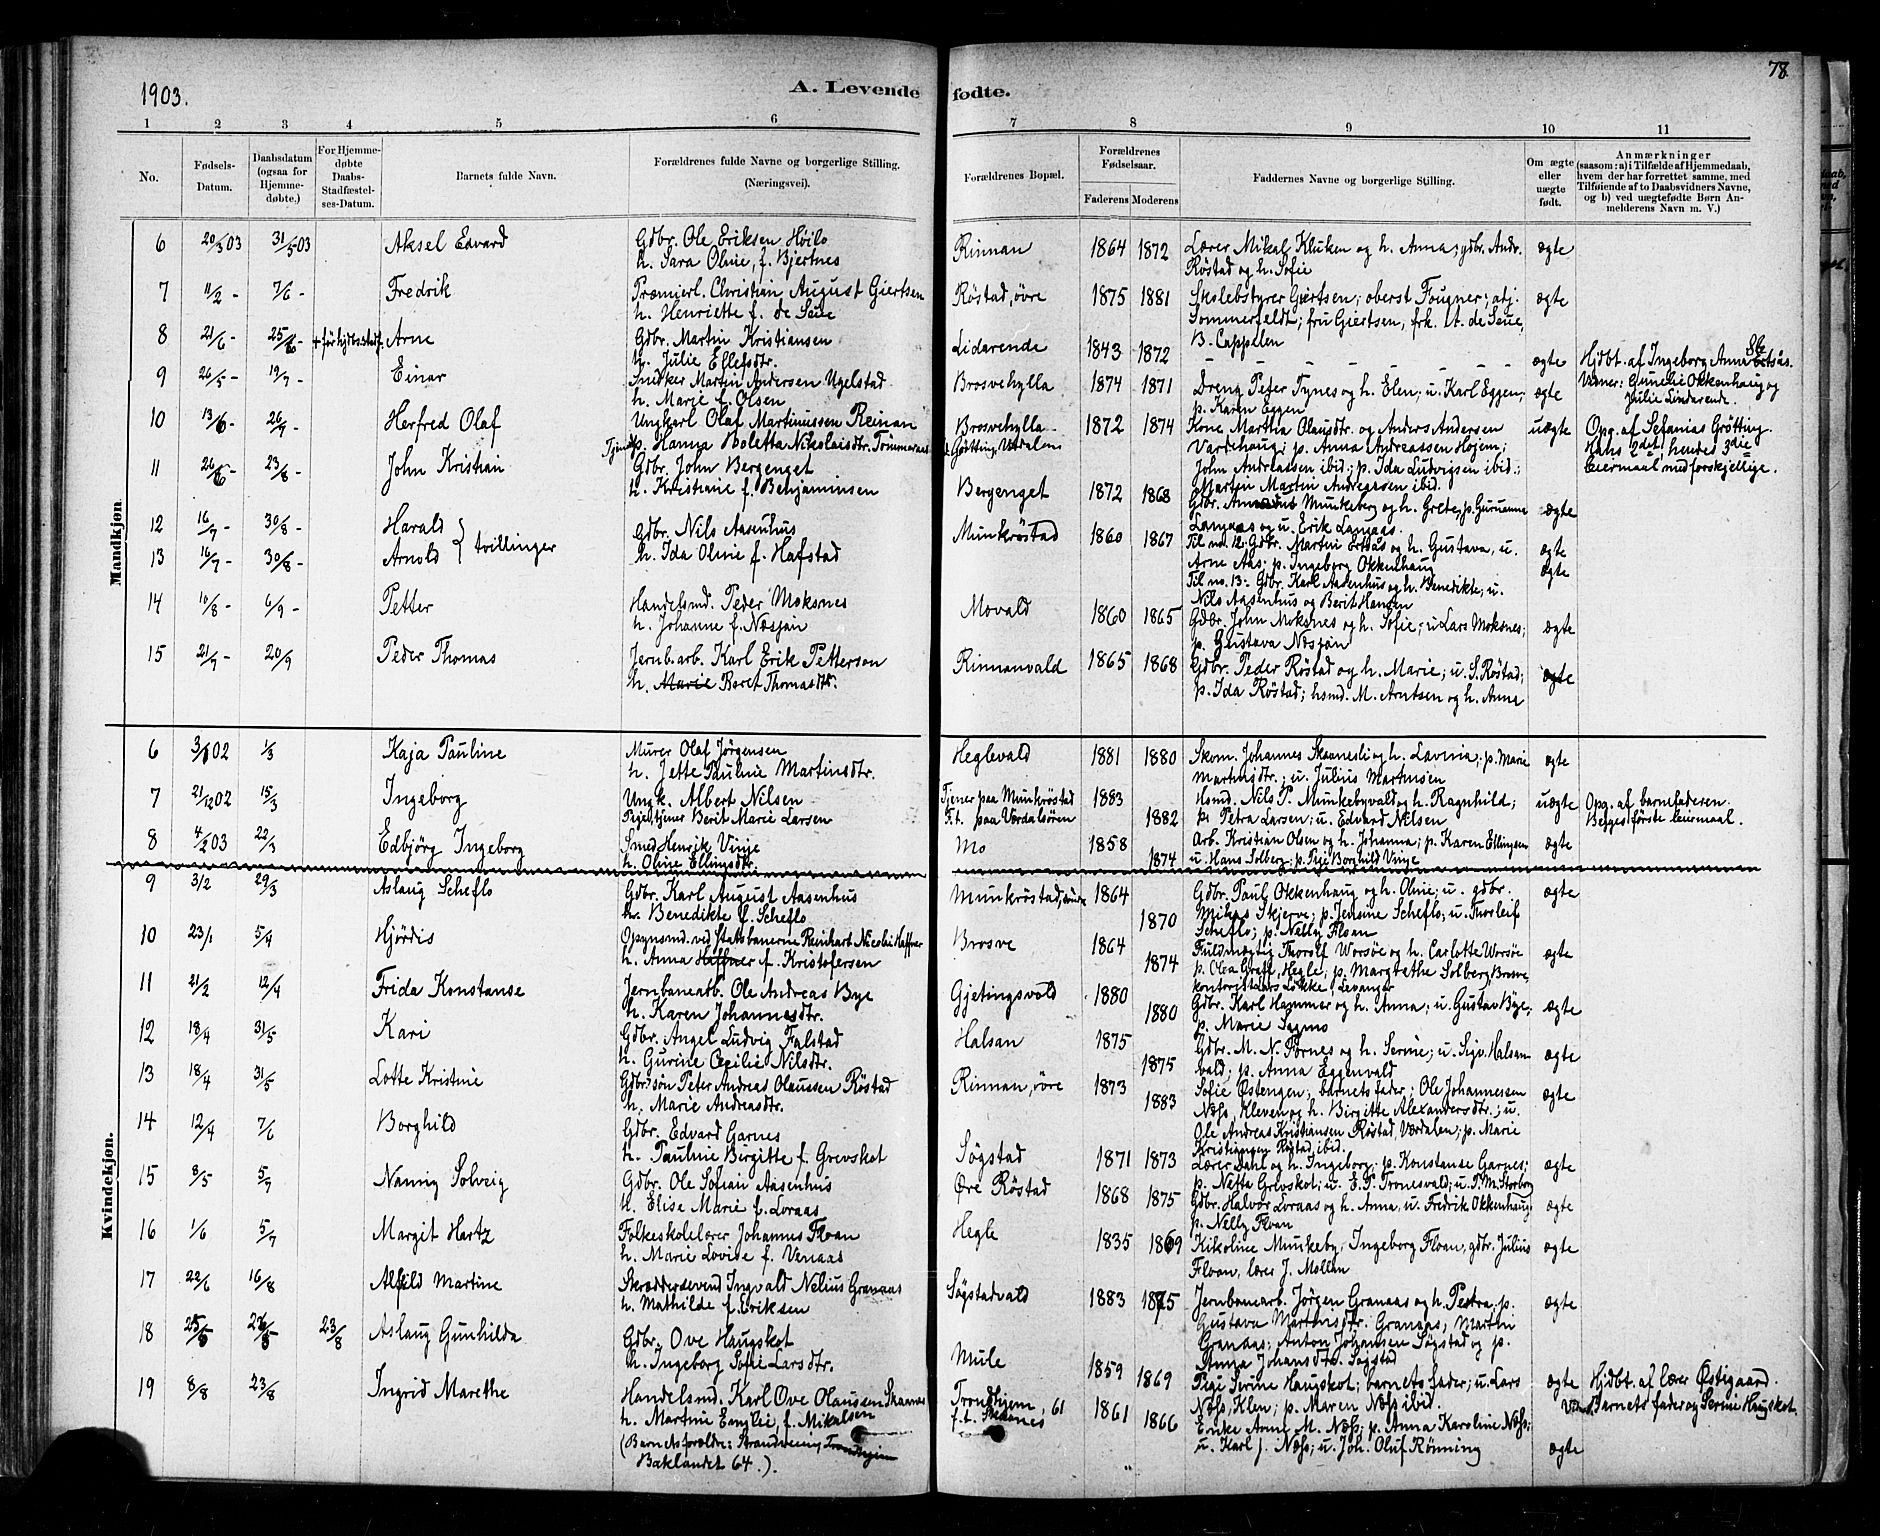 78
1903.
A. Levende fødte.
1 2 3 4 5 6 7 8 9 10 11
No.
Fødsels-Datum.
Daabsdatum (ogsaa for Hjemmedøbte.)
For Hjemmedøbte Daabs-Stadfæstelses-Datum.
Barnets fulde Navn.
Forældrenes fulde Navne og borgerlige Stilling. (Næringsvei).
Forældrenes Bopæl.
Forældrenes Fødselsaar.
Faderens Moderens
Faddernes Navne og borgerlige Stilling.
Om ægte eller uægte født.
Anmærkninger
(saasom: a) i Tilfælde af Hjemmedaab, hvem der har forrettet samme, med Tilføiende af to Daabsvidners Navne, og b) ved uægtefødte Børn Anmelderens Navn m. V.)
Mandkjøn
6 20/3 03 31/5 03 Aksel Edvard Gdbr. Ole Eriksen Höilo Rinnan 1864 1872 Lærer Mikal Kluken og h. Anna; gdbr. Andr. ægte
h. Sara Oline, f. Bjertnes Röstad og h. Sofie
7 11/2 - 7/6 - Fredrik Præmierl. Christian August Giertsen Röstad, övre 1875 1881 Skolebstyrer Giertsen; oberst Fougner; adj. ægte
h. Henriette f. de Seue Sommerfeldt; fru Giertsen, frk. M. de Seue,
B. Cappelen
8 21/6 - 25/6 - + för hjdbs. stadf. Arne Gdbr. Martin Kristiansen Lidarende 1843 1872 - - - - - - ægte Hjdbt. af Ingeborg Anna Ertsås.
h. Julie Ellefsdtr. Vidner: Gunelie Okkenhaug og
Julie Lindarende.
9 26/5 - 19/7 - Einar Snedker Martin Andersen Ugelstad Brosvehylla 1874 1871 Dreng Peter Tynes og h. Elen; u. Karl Eggen; ægte
h. Marie f. Olsen p. Karen Eggen
10 13/6 - 26/7 - Herfred Olaf Ungkarl Olaf Martinussen Reinan Brosvehylla 1872 1874 Kone Martha Olausdtr. og Anders Andersen uægte Opg. af Sefanias Gröttin.
Tjenep. Hanna Boletta Nikolaisdtr. Trönneraas Götting, Verdalen Vardehaug; p. Anna Andreassen Hojem; Hans 2det, hendes 3die
John Andreassen ibid.; p. Ida Ludvigsen ibid.; leiermaal med forskjellige.
Martin Martin Andreassen ibid.
11 26/6 - 23/8 - John Kristian Gdbr. John Bergenget Bergenget 1872 1868 Gdbr. Munkeberg og h. Grete, p. Gurianne ægte
h. Kristiane f. Benjaminsen Langaas og u. Erik Langaas.
12 16/7 - 30/8 - Harald Gdbr. Nils Aasenhus Munkröstad 1860 1867 Til no. 12. Gdbr. Martin Ertsås og h. Gustava, u. ægte
tvillinger Arne Aas; p. Ingeborg Okkenhaug
13 16/7 - 30/8 - Arnold h. Ida Oline f. Hafstad Til no. 13: Gdbr. Karl Aasenhus og h. Benedikte; u. ægte
Nils Aasenhus og Berit Hansen
14 10/8 - 6/9 - Petter Handelsmd. Peder Moksnes Movald 1860 1865 Gdbr. John Moksnes og h. Sofie; u. Lars Moksnes; ægte
h. Johanne f. Næsjan p. Gustava Næsjan
15 21/7 - 20/9 Peder Thomas Jernb. arb. Karl Erik Petterson Rinnanvald 1865 1868 Gdbr. Peder Röstad og h. Marie; u. S. Röstad; ægte
h. Marie Beret Thomasdtr. p. Ida Röstad; hsmd. M. Arntsen og h. Anna
Kvindekjøn.
6 3/1 02 1/3 Kaja Pauline Murer Olaf Jörgensen Heglevald 1881 1880 Skom. Johannes Skaanesli og h. Lavinia; p. Marie ægte
h. Jette Pauline Martinsdtr. Martinsdtr.; u. Julius Martinsen
7 21/12 02 15/3 Ingeborg Ungk. Albert Nilsen Tjener paa Munkröstad 1883 Hsmd. Nils P. Munkebyvald og h. Ragnhild; uægte Opg. af barnefaderen.
Pige, tjener Berit Marie Larsen F. t. paa Verdalsören 1882 p. Petra Larsen; u. Edvard Nilsen Begges förste leiermaal.
8 4/2 03 22/3 Edbjörg Ingeborg Smed Henrik Vinje Mo 1858 1874 Arb. Kristian Olsen og h. Johanna; p. Karen Ellingsen ægte
h. Oline Ellingsdtr. u. Hans Solberg; p. Pige Borghild Vinje
9 3/2 29/3 Aslaug Scheflo Gdbr. Karl August Aasenhus Munkröstad, nedre 1864 1870 Gdbr. Paul Okkenhaug og h. Oline; u. gdbr. ægte
h. Benedikte f. Scheflo Mikas Skjerve; p. Jensine Scheflo; u. Thorleif
Scheflo; p. Nelly Floan
10 23/1 5/4 Hjördis Opsynsmd. ved statsbanerne Reinhart Nicolai Haffner Brosve 1864 1874 Fuldmægtig Thorolf Worsöe og h. Carlotte Worsöe ægte
h. Anna Haffner f. Kristofersen p. Olea Graff, Hegle; p. Margrathe Solberg, Brosve,
kontorist Lars Lökke, Levanger
11 21/2 12/4 Frida Konstanse Jernbanearb. Ole Andreas Bye Gjetingsvold 1880 1880 Gdbr. Karl Hammer og h. Anna; u. Gustav Bye; ægte
h. Karen Johannesdtr. p. Marie Sagmo
12 18/4 31/5 Kari Gdbr. Angel Ludvig Falstad Halsan 1875 1875 Gdbr. M. N. Fornes og h. Serine; u. Sigv. Halsan ægte
h. Gurine Cecilie Nilsdtr. vald; p. Anna Eggenvald
13 18/4 31/5 Lotte Kristine Gdbr. sön Peter Andreas Olausen Röstad Rinnan, övre 1873 1883 Sofie Östengen; barnets fader; Ole Johannessen ægte
h. Marie Andreasdtr. Næss, Kleven og h. Birgitte Alexandersdtr.; u.
Ole Andreas Kristiansen Röstad, Værdalen; p. Marie
Kristiansen Röstad ibid.
14 12/4 7/6 Borghild Gdbr. Edvard Garnes Sögstad 1871 1873 Lærer Dahl og h. Ingeborg; p. Konstanse Garnes; ægte
h. Pauline Birgitte f. Grevskot p. Nefta Grevskot; u. E. P. Tronesvald; u. P. M. Storborg
15 8/5 5/7 Nanny Solveig Gdbr. Ole Sofian Aasenhus Övre Röstad 1868 1875 Gdbr. Halvor Loraas og h. Anna, u. Fredrik Okkenhaug; ægte
h. Elise Marie f. Loraas p. Nelly Floan
16 1/6 5/7 Margit Hartz Folkeskolelærer Johannes Floan Hegle 1835 1869 Kikoline Munkeby, Ingeborg Floan, gdbr. Julius ægte
h. Marie Lovise f. Venaas Floan, lærer J. Mollan
17 22/6 16/8 Alfild Martine Skræddersvend Ingvald Nelius Granaas Sögstadvald 1883 1875 Jernbanearb. Jörgen Granaas og h. Petra, p. ægte
h. Mathilde f. Eriksen Gustava Martinsdtr. Granaas, Martin
Granaas; Anton Johansen Sögstad og p.
Anna Johansdtr. Sögstad
18 25/5 23/8 Aslaug Gunhilda Gdbr. Ove Haugskot Mule 1859 1869 Pige Serine Haugskot; barnets fader; u. Lars ægte Hjdbt. af lærer Östigaard.
h. Ingeborg Sofie Larsdtr. Næss, Klen; p. Maren Næss ibid. Vidner: Barnets fader og Serine Haugskot.
19 8/8 23/8 Ingrid Marethe Handelsmd. Karl Ove Olaussen Skaanes Trondhjem, 61 1861 1866 Enke Anne M. Næss; p. Anna Karoline Næss; ægte
h. Martine Emilie f. Mikalsen f. t. Skånes u. Karl J. Næss; u. Joh. Oluf Rönning
(Barnets forældre: Strandveien, Trondhjem
Baklandet 64.).